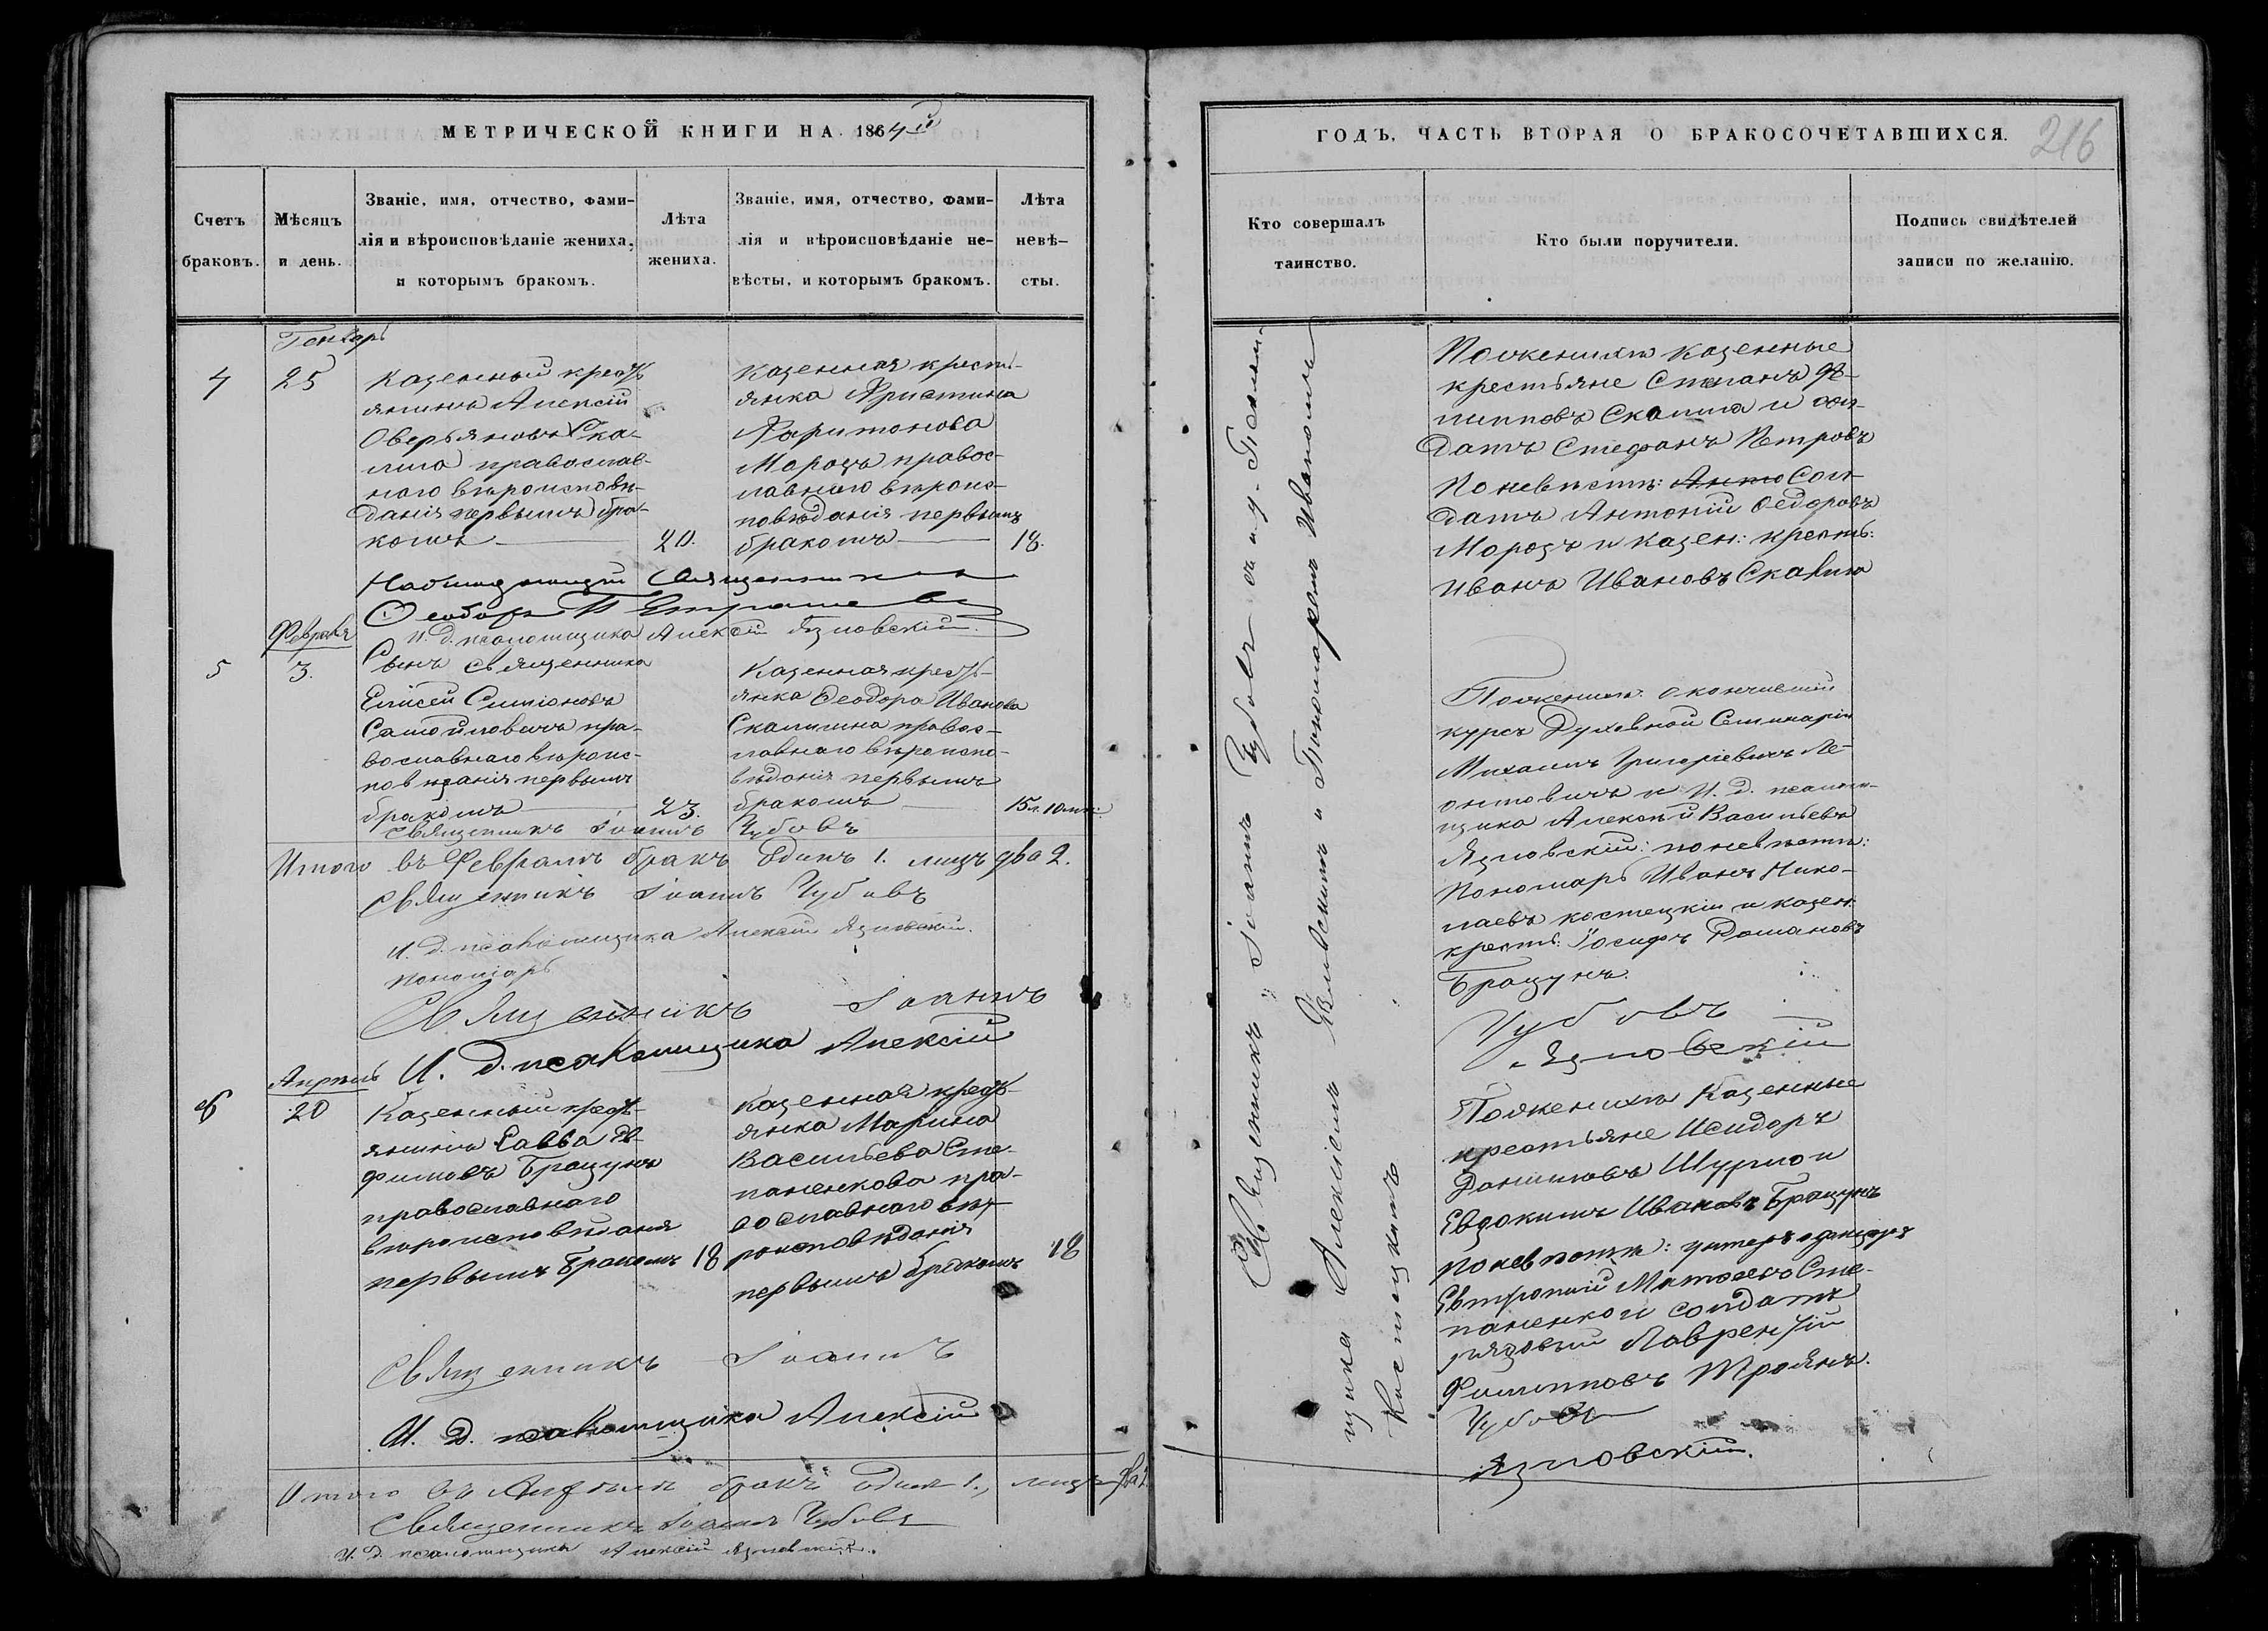 МЕТРИЧЕСКОЙ КНИГИ НА 1864й
Счетъ браковъ.
Мѣсяцъ и день.
Званіе, имя, отчество, фами-
лія и вѣроисповѣданіе жениха,
и которымъ бракомъ.
Лѣта жениха.
Званіе, имя, отчество, фами-
лія и вѣроисповѣданіе не-
вѣсты, и которымъ бракомъ.
Лѣта невѣ-
сты.
Генварь
4
25
Казенный кресть
янинъ Алексій
Оверьяновъ Ска-
лига православ-
наго вѣроисповѣ-
данія первымъ бра-
комъ
20.
Казенная кресть-
янка Христина
Харитонова
Морозъ правос-
лавнаго вѣроис-
повѣданія первымъ
бракомъ
18.
Священникъ
Ѳеодоръ
И. д. псаломщика Алексій Язловскій.
Февраль
5
3.
Сынъ священника
Елисей Симіоновъ
Самойловичъ пра-
вославнаго вѣроис-
повѣданія первымъ
бракомъ
23.
Казенная кресть-
янка Ѳеодора Иванова
Скалигина правос-
лавнаго вѣроиспо-
вѣданія первымъ
бракомъ
15л. 10 м.
Священникъ Іоаннъ Чубовъ
Итого въ Февралѣ бракъ Одинъ 1. лицъ два 2.
Священникъ Іоаннъ Чубовъ
И. Д. псаломщика Алексій Язловскій.
Пономарь
Священникъ Іоаннъ
И. Д. псаломщика Алексій
Апрѣль
6
20
Казенный кресть-
янинъ Савва Еѳ-
фимовъ Брацунъ
православнаго
вѣроисповѣданія
первымъ бракомъ
18
Казенная кресть-
янка Марина
Васильева Сте-
паненкова пра-
вославнаго вѣ-
роисповѣданія
первымъ бракомъ
18
Священникъ Іоаннъ
И. Д. псаломщика Алексій
Итого въ Апрѣлѣ бракъ Одинъ 1., лицъ два 2
Священникъ Іоаннъ Чубовъ
И. Д. псаломщика Алексій Язловскій.
ГОДЪ, ЧАСТЬ ВТОРАЯ О БРАКОСОЧЕТАВШИХСЯ.
216
Кто совершалъ таинство.
Кто были поручители.
Подпись свидѣтелей
записи по желанію.
Священникъ Іоаннъ Чубовъ съ и. д. Псалом-
щика Алексіемъ Язловскимъ и Пономаремъ Иваномъ
Костецкимъ
По женихѣ казенные
крестьяне Степанъ Фи-
липповъ Скалига и сол-
датъ Стефанъ Петровъ
По невѣстѣ: Анто Сол-
датъ Антоній Ѳедоровъ
Морозъ и казен: кресть:
Иванъ Ивановъ Скалига
По женихѣ: окончившій
курсъ Духовной Семинаріи
Михаилъ Григоріевичъ Ле-
онтовичъ и И. Д. псалом-
щика Алексѣй Васильевъ
Язловскій: по невѣстѣ:
Пономарь Иванъ Нико-
лаевъ Костецкій и казен:
кресть: Іосифъ Романовъ
Брацунъ.
Чубовъ
Язловскій
По женихѣ Казенные
крестьяне Исидоръ
Даниловъ Шурло и
Евдокимъ Ивановъ Брацунъ
по невѣстѣ: унтеръ офицеръ
Евтропій Матѳеевъ Сте-
паненко и солдатъ
рядовый Лаврентій
Филипповъ Троянъ.
Чубовъ
Язловскій.